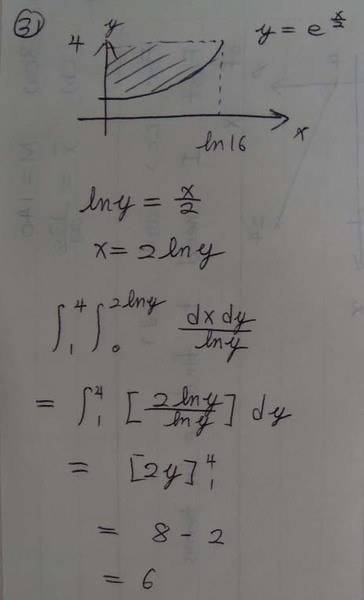 ③
y
4
y = e^{x/2}
x
ln 16
ln y = x/2
x = 2 ln y
∫_1^4 ∫_0^{2 ln y} dx dy / ln y
= ∫_1^4 [2 ln y / ln y] dy
= [2y]_1^4
= 8 - 2
= 6